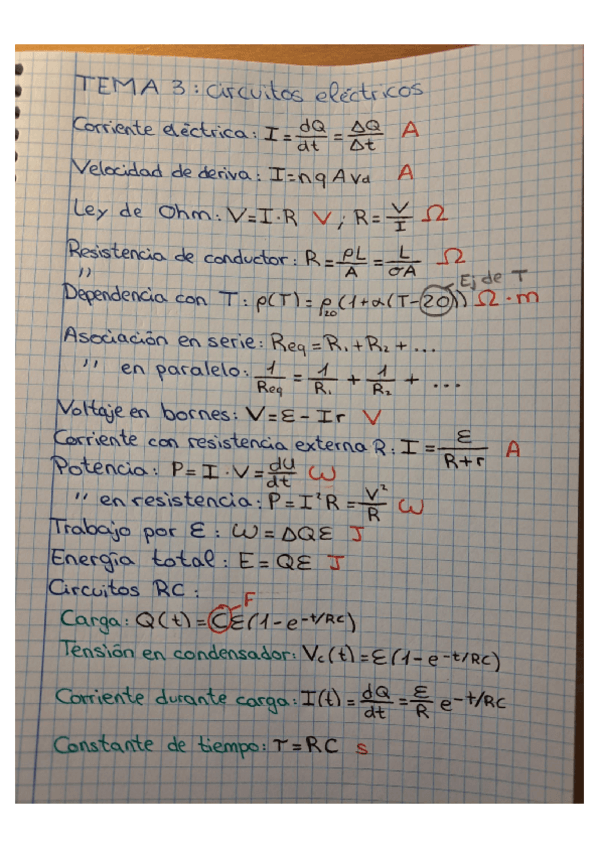 TEMA 3: Circuitos eléctricos
Corriente eléctrica: I = dQ/dt = ΔQ/Δt A
Velocidad de deriva: I = n q A vd A
Ley de Ohm: V = I · R V ; R = V/I Ω
Resistencia de conductor: R = ρL/A = L/σA Ω
Ej de T
'' Dependencia con T: ρ(T) = ρ20 (1 + α(T - 20)) Ω · m
Asociación en serie: Req = R1 + R2 + ...
'' en paralelo: 1/Req = 1/R1 + 1/R2 + ...
Voltaje en bornes: V = ε - Ir V
Corriente con resistencia externa R: I = ε/R+r A
Potencia: P = I · V = dU/dt W
'' en resistencia: P = I²R = V²/R W
Trabajo por ε: W = ΔQε J
Energía total: E = Qε J
Circuitos RC:
F
Carga: Q(t) = Cε(1 - e^-t/RC)
Tensión en condensador: Vc(t) = ε(1 - e^-t/RC)
Corriente durante carga: I(t) = dQ/dt = ε/R e^-t/RC
Constante de tiempo: τ = RC s